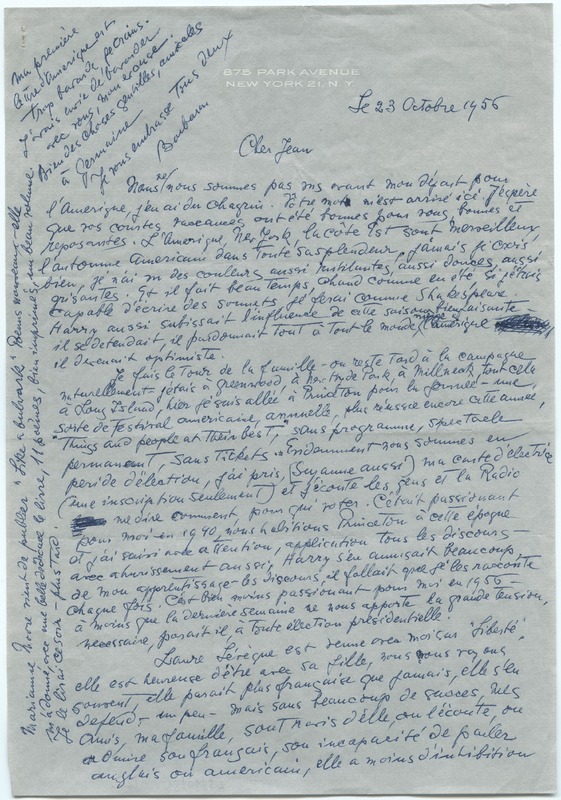 875 PARK AVENUE
NEW YORK 21, N.Y.
Le 23 Octobre 1956
Cher Jean
Nous ne nous sommes pas vus avant mon départ pour
l'Amérique, j'en ai du chagrin. Votre mot m'est arrivé ici. J'espère
que vos courtes vacances ont été bonnes pour vous, bonnes et
reposantes. L'Amérique, New York, la côte Est sont merveilleux,
l'automne Américain dans toute sa splendeur, jamais je crois
bien, je n'ai vu des couleurs aussi, aussi douces, aussi
grisantes. Et il fait beau temps, chaud comme en été. Si j'étais
capable d'écrire des sonnets, je ferai comme Shakespeare
Harry aussi subissait l'influence de cette saison bienfaisante
il se défendait, il pardonnait tout à tout le monde, l'Amérique
il devenait optimiste.
Je fais le tour de la famille - on reste tard à la campagne
naturellement - j'étais à Greenwood, à Hyde Park, à Millneck, tout cela
à Long Island, hier je suis allée à Princeton pour la journée - une
sorte de festival américain, annuelle, plus réussie encore cette année,
"Things and people at their best," sans programme, spectacle
permanent, sans tickets - Evidemment nous sommes en
période d'élection, j'ai pris, (Suzanne aussi) ma carte d'électrice
(une inscription seulement) et j'écoute les gens et la Radio
me dire comment, pour qui voter. C'était passionant
pour moi en 1940, nous habitions Princeton à cette époque
et j'ai suivi avec attention, application tous les discours
avec ahurissement aussi, Harry s'en amusait beaucoup
de mon apprentissage - les discours, il fallait que je les raconte
chaque fois. C'est bien moins passionant pour moi en 1956 -
à moins que la dernière semaine ne nous apporte la grande tension,
nécessaire, paraît-il, à toute élection présidentielle.
Laure Lévêque est venue avec moi sur 'Liberté',
elle est heureuse d'être avec sa fille, nous nous voyons
souvent, elle paraît plus française que jamais, elle s'en
défend - un peu - mais sans beaucoup de succès, mes
amis, ma famille, sont ravis d'elle, on l'écoute, on
admire son français, son incapacité de parler
anglais ou américain, elle a moins d'inhibition
Marianne Moore vient de publier "Like a bulwark". Poems nouveaux, elle
m'a donné, avec une belle dédicace le livre, 11 poèmes, bien imprimés, un beau volume
Je le lirai ce soir - plus tard
Ma première
lettre d'Amérique est
trop bavarde je crains.
J'ai envie de bavarder
avec vous, mon
Bien des choses gentilles, amicales
à Germaine
Je vous embrasse tous deux
Barbara